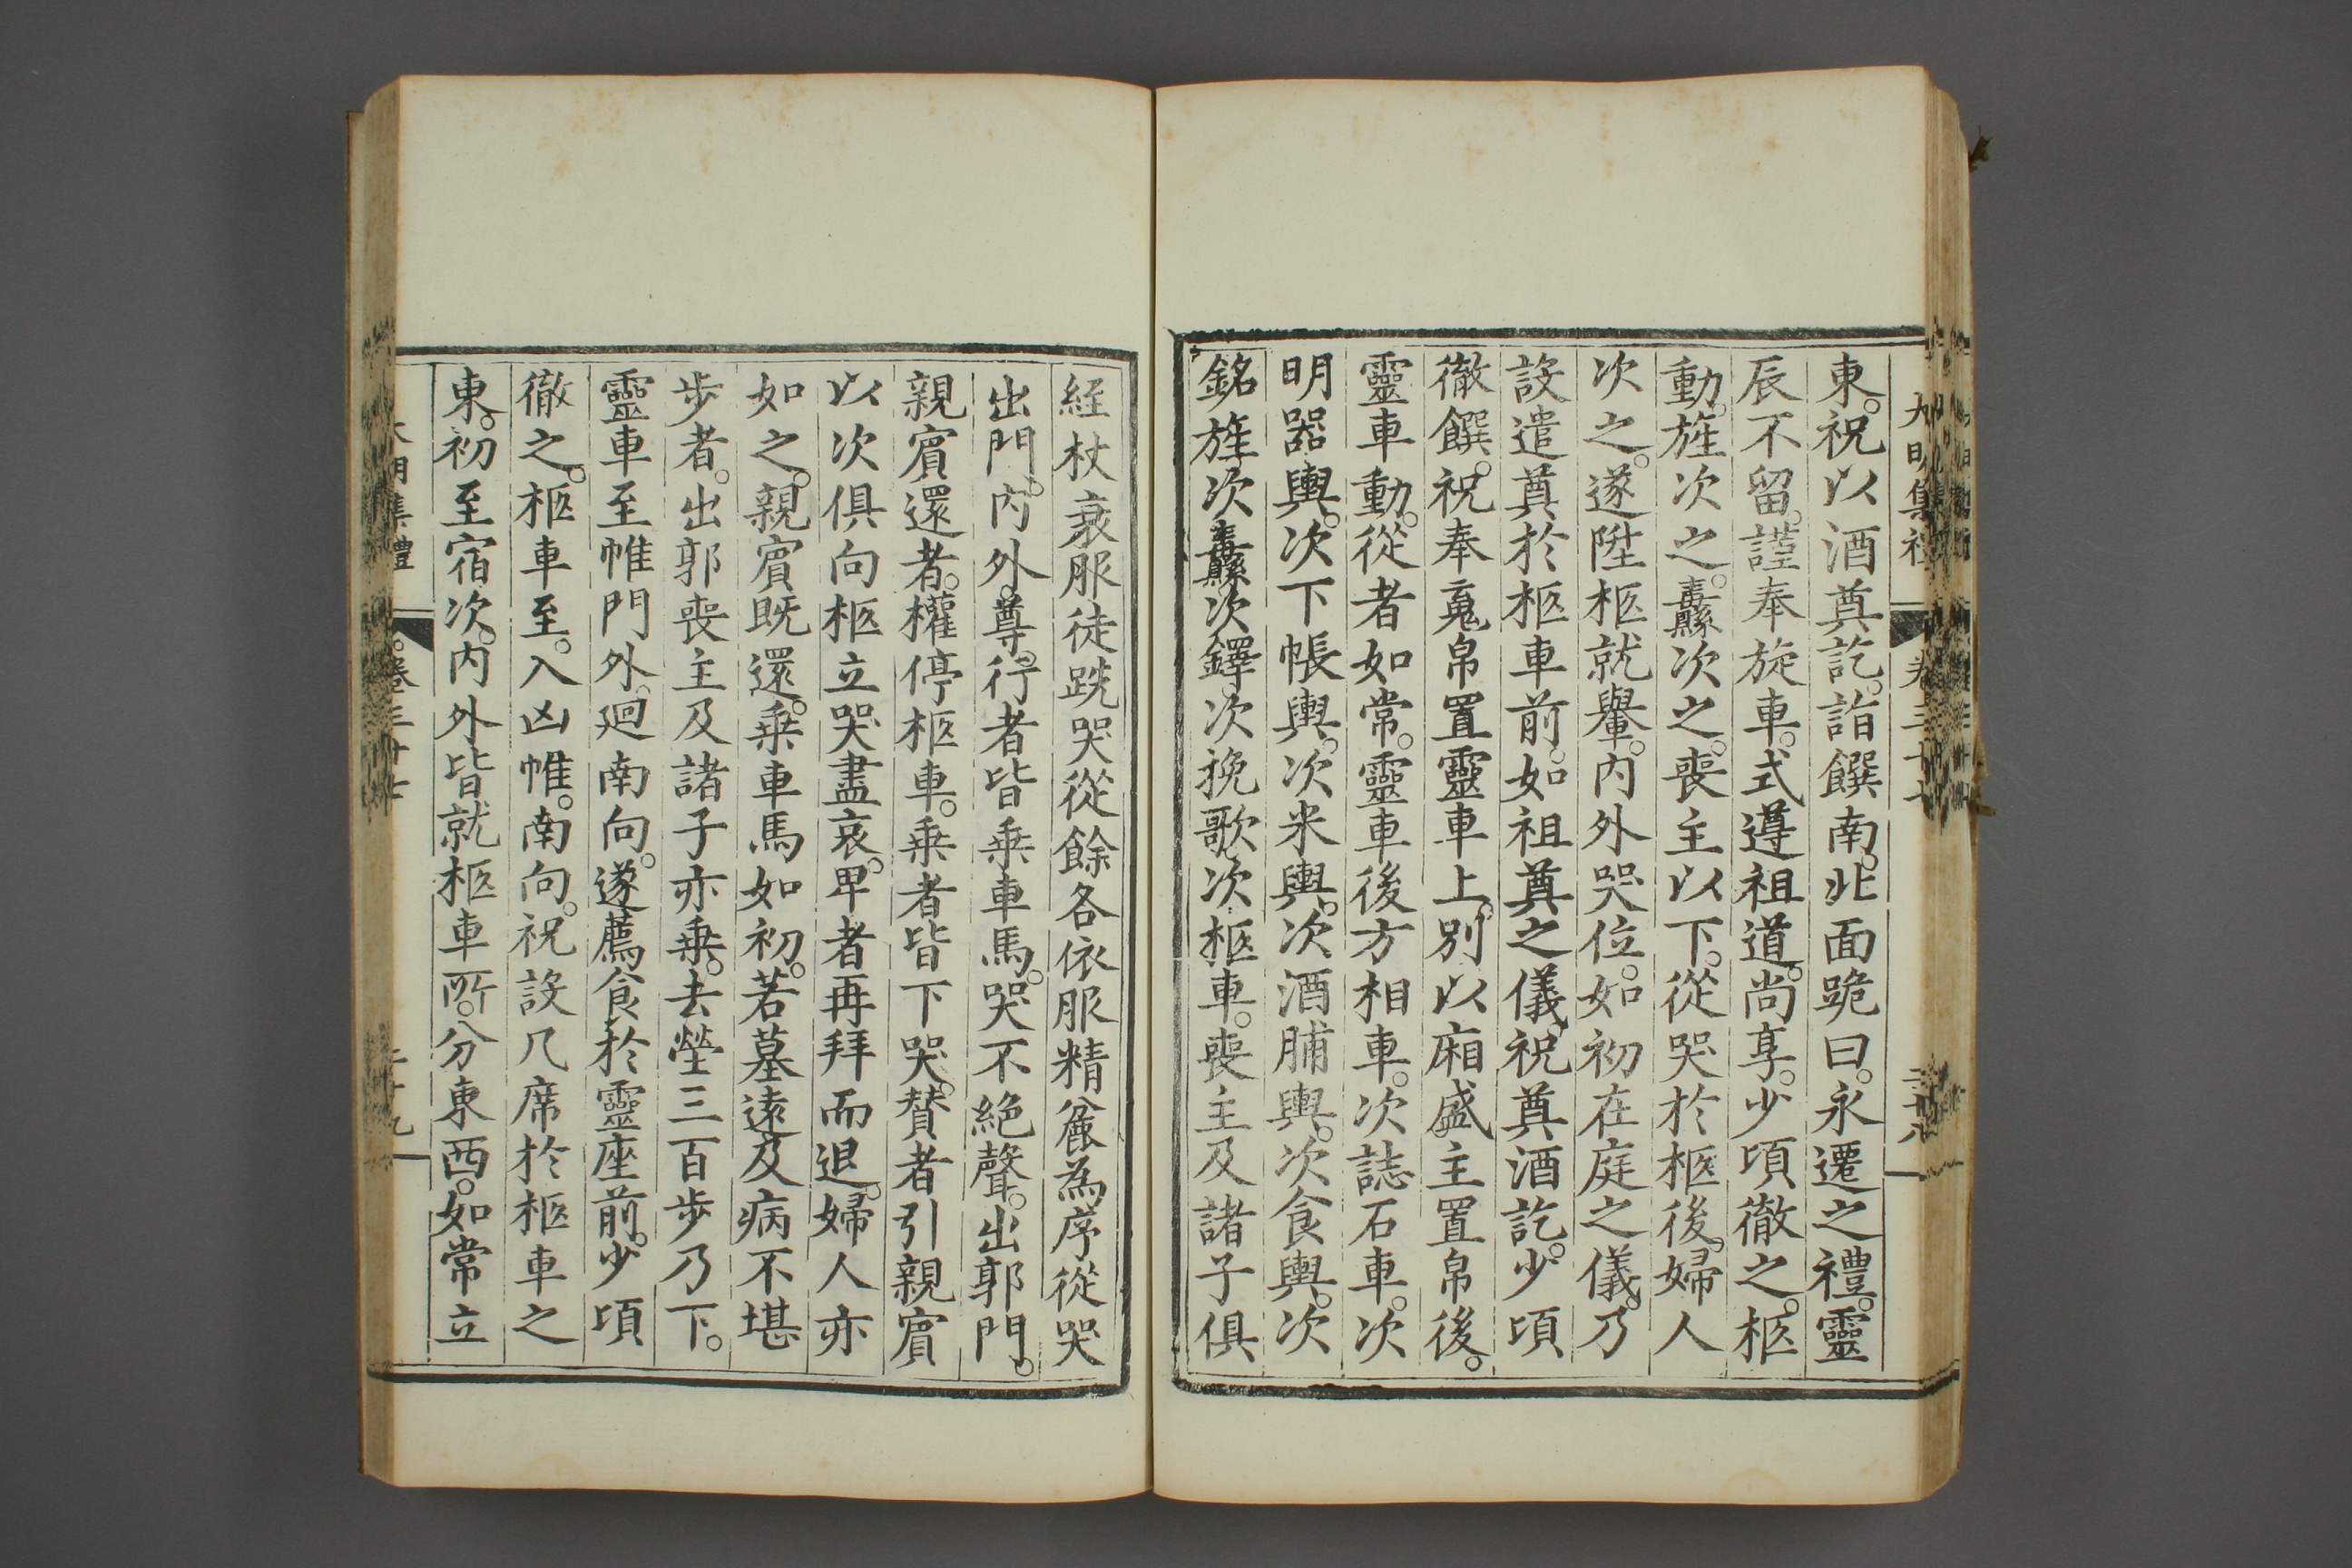 東。祝以酒奠訖。詣饌南。北面跪曰。永遷之禮。靈
辰不留。謹奉旋車。式遵祖道。尚享。少頃徹之。柩
動。旌次之。纛次之。喪主以下。從哭於柩後。婦人
次之。遂陞柩就轝。内外哭位。如初在庭之儀。乃
設遣奠於柩車前。如祖奠之儀。祝奠酒訖。少頃
徹饌。祝奉䰟帛置靈車上。別以廂盛主置帛後。
靈車動。從者如常。靈車後方相車。次誌石車。次
明器輿。次下帳輿。次米輿。次酒脯輿。次食輿。次
銘旌次纛次鐸。次挽歌次柩車。喪主及諸子俱
絰杖衰服徒跣哭從餘各依服精麄為序從哭
出門。内外。尊。行者皆乗車馬。哭不絶聲。出郭門。
親賓還者。權停柩車。乗者皆下哭。賛者引親賓
以次俱向柩立哭盡哀。卑者再拜而退。婦人亦
如之。親賓既還。乗車馬如初。若墓遠及病不堪
步者。出郭喪主及諸子亦乗。去塋三百步乃下。
靈車至帷門外。廻南向。遂薦食於靈座前。少頃
徹之。柩車至。入凶帷。南向。祝設几席於柩車之
東。初至宿次。内外皆就柩車所。分東西。如常立
大明集禮
卷三十七
二十八
大明集禮
卷三十七
二十九